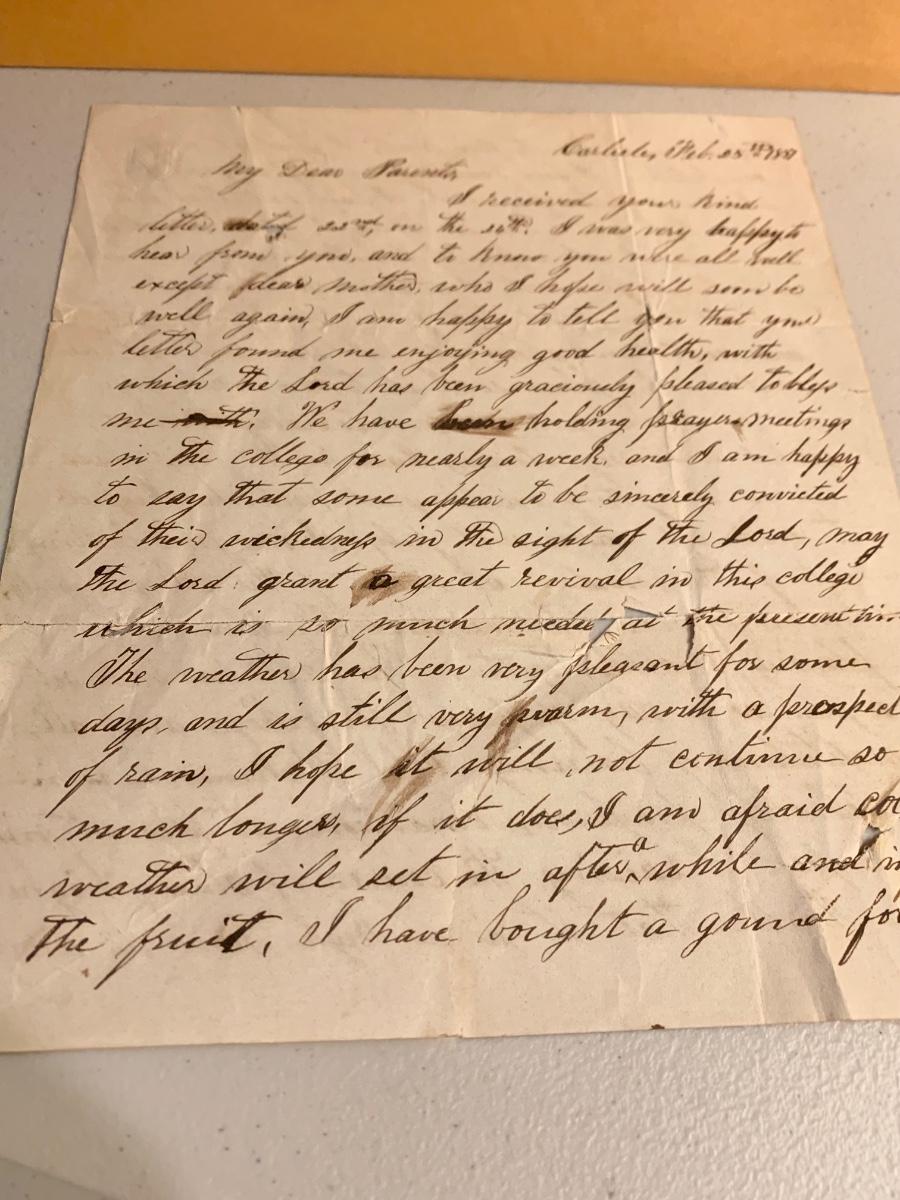 Carlisle, Feb. 25
My Dear Parents,
I received your kind
letter, 22nd, on the 24th. I was very happy to
hear from you, and to know you were all well
except dear mother, who I hope will soon be
well again, I am happy to tell you that your
letter found me enjoying good health, with
which the Lord has been graciously pleased to bless
me with. We have been holding prayer meetings
in the college for nearly a week, and I am happy
to say that some appear to be sincerely convicted
of their wickedness in the sight of the Lord, may
the Lord grant a great revival in this college
which is so much needed at the present
The weather has been very pleasant for some
days, and is still very warm, with a prospect
of rain, I hope it will not continue so
much longer, if it does, I am afraid
weather will set in after a while and
the fruit, I have bought a gound for